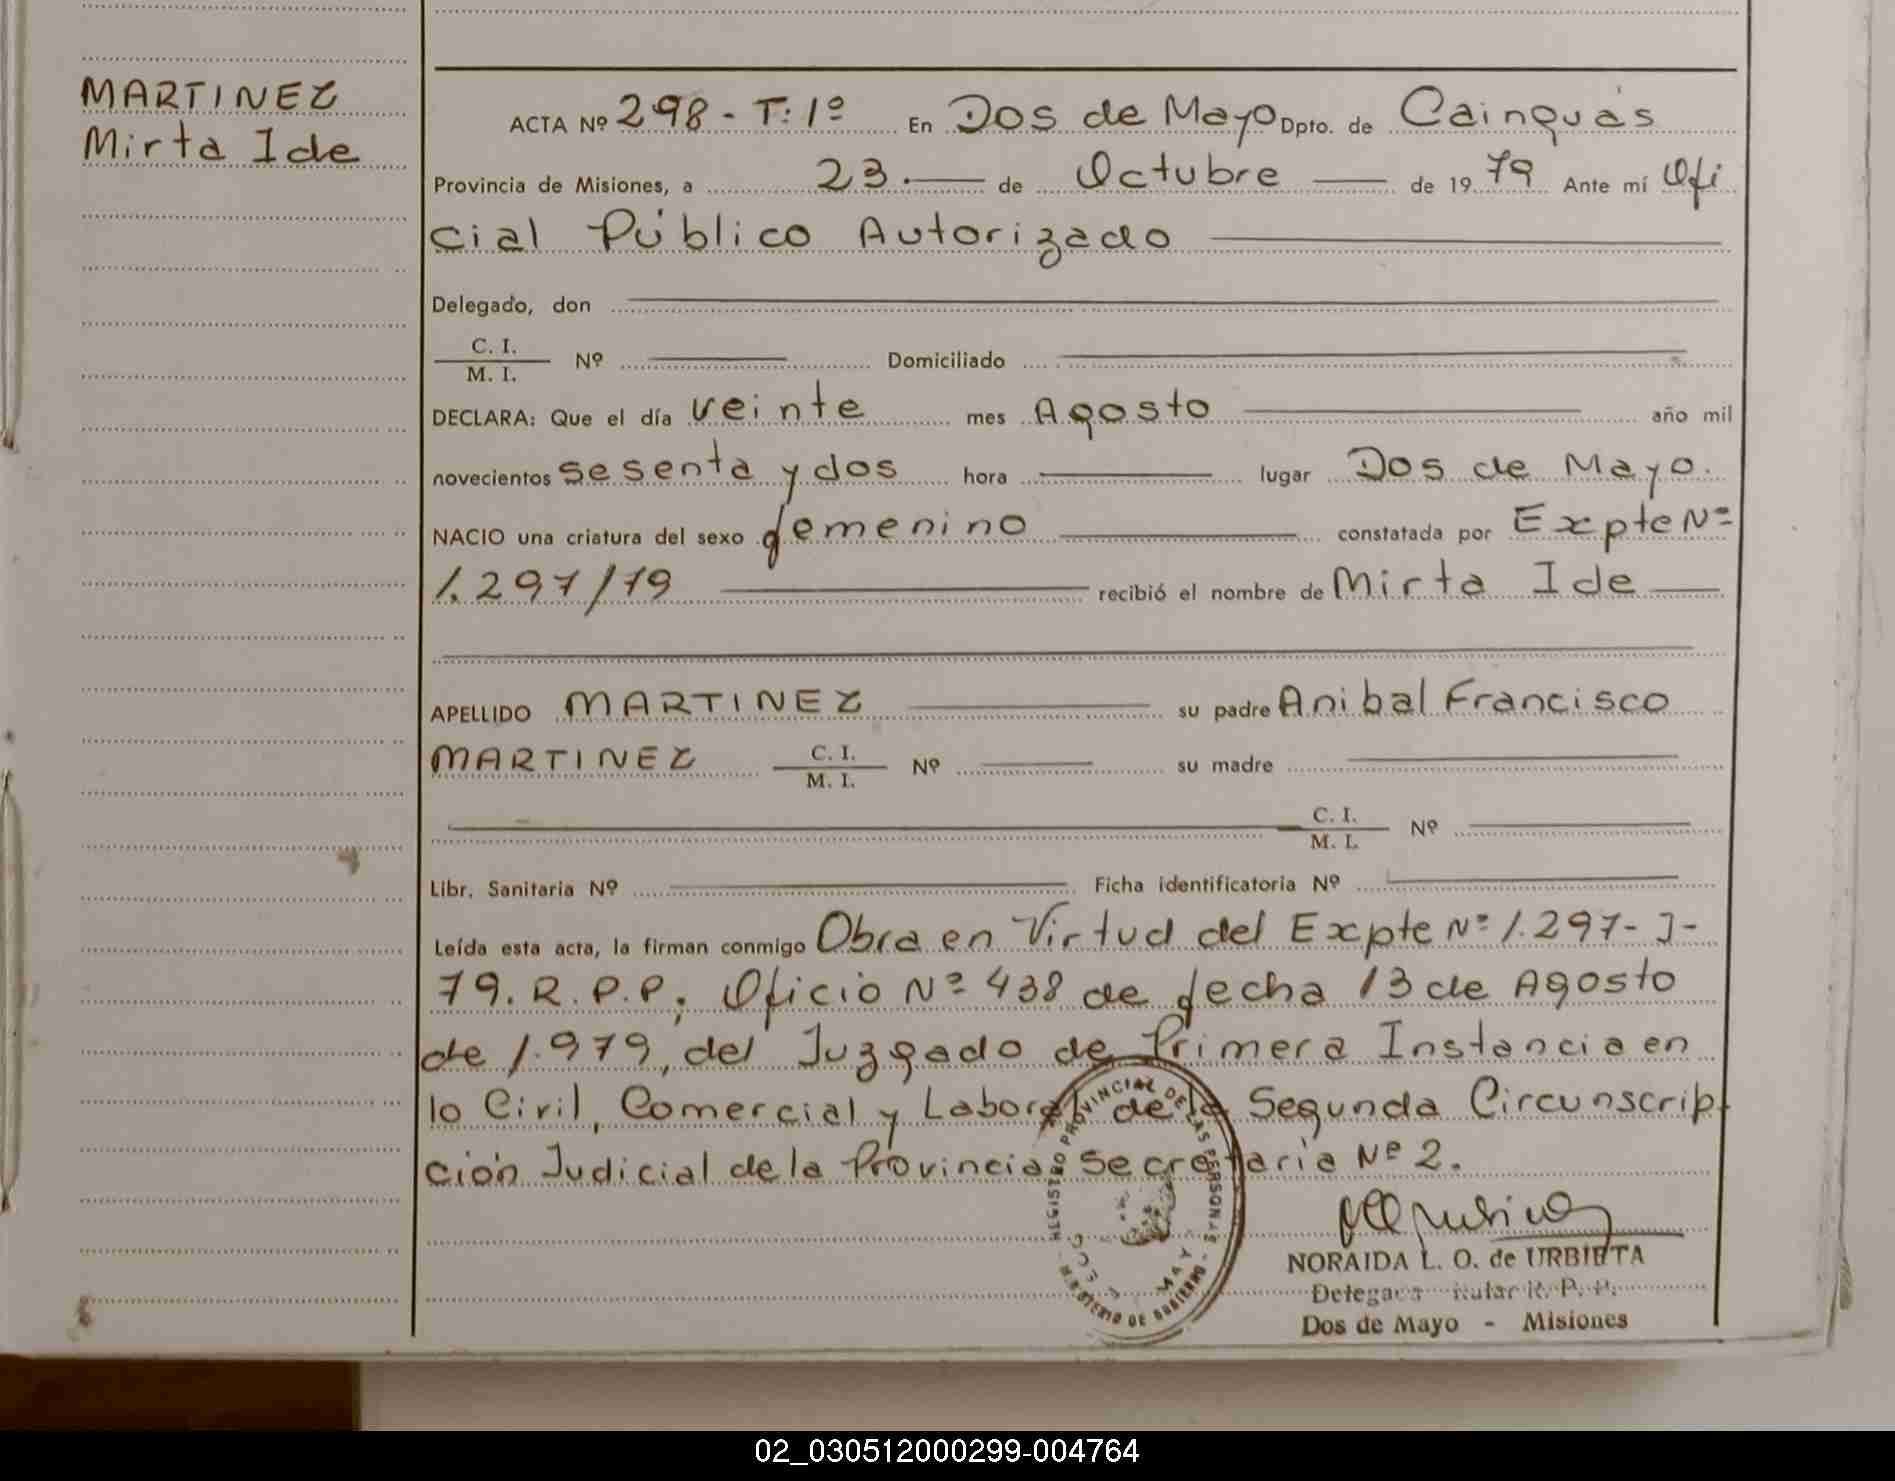 MARTINEZ
Mirta Ide
ACTA Nº 298 - T: 1º En Dos de Mayo Dpto. de Cainguás
Provincia de Misiones, a 23.— de Octubre — de 1979 Ante mí Ofi
cial Público Autorizado
Delegado, don
C. I.
M. I. Nº Domiciliado
DECLARA: Que el día veinte mes Agosto año mil
novecientos sesenta y dos hora lugar Dos de Mayo.
NACIO una criatura del sexo femenino constatada por Expte Nº
1.297/79 recibió el nombre de Mirta Ide
APELLIDO MARTINEZ su padre Anibal Francisco
MARTINEZ C. I. M. I. Nº su madre
C. I. M. I. Nº
Libr. Sanitaria Nº Ficha identificatoria Nº
Leída esta acta, la firman conmigo Obra en Virtud del Expte Nº 1.297-J-
79. R.P.P; Oficio Nº 438 de fecha 13 de Agosto
de 1.979, del Juzgado de Primera Instancia en
lo Civil, Comercial y Laboral de la Segunda Circunscrip-
ción Judicial de la Provincia Secretaría Nº 2.
REGISTRO PROVINCIAL DE LAS PERSONAS
MINISTERIO DE GOBIERNO
NORAIDA L. O. de URBIETA
Dos de Mayo - Misiones
02_030512000299-004764